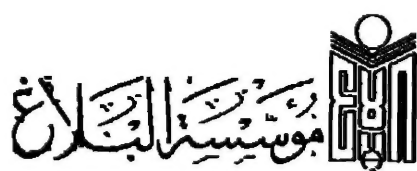 مؤسسة البلاغ